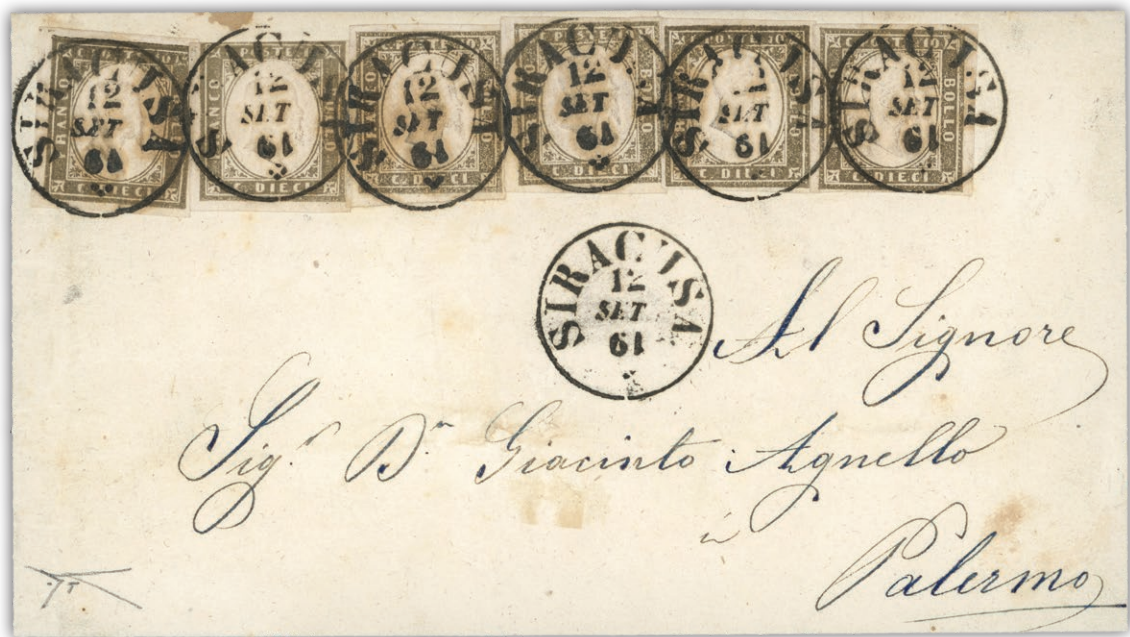 C. POSTE BOLLO FRANCO C. DIECI
SIRACUSA 12 SET 61
SIRACUSA 12 SET 61
SIRACUSA 12 SET 61
SIRACUSA 12 SET 61
SIRACUSA 12 SET 61
SIRACUSA 12 SET 61
C. DIECI
C. DIECI
C. DIECI
C. DIECI
C. DIECI
SIRACUSA
12
SET
61
Al Signore
Sig.r D.n Giacinto Agnello
à
Palermo